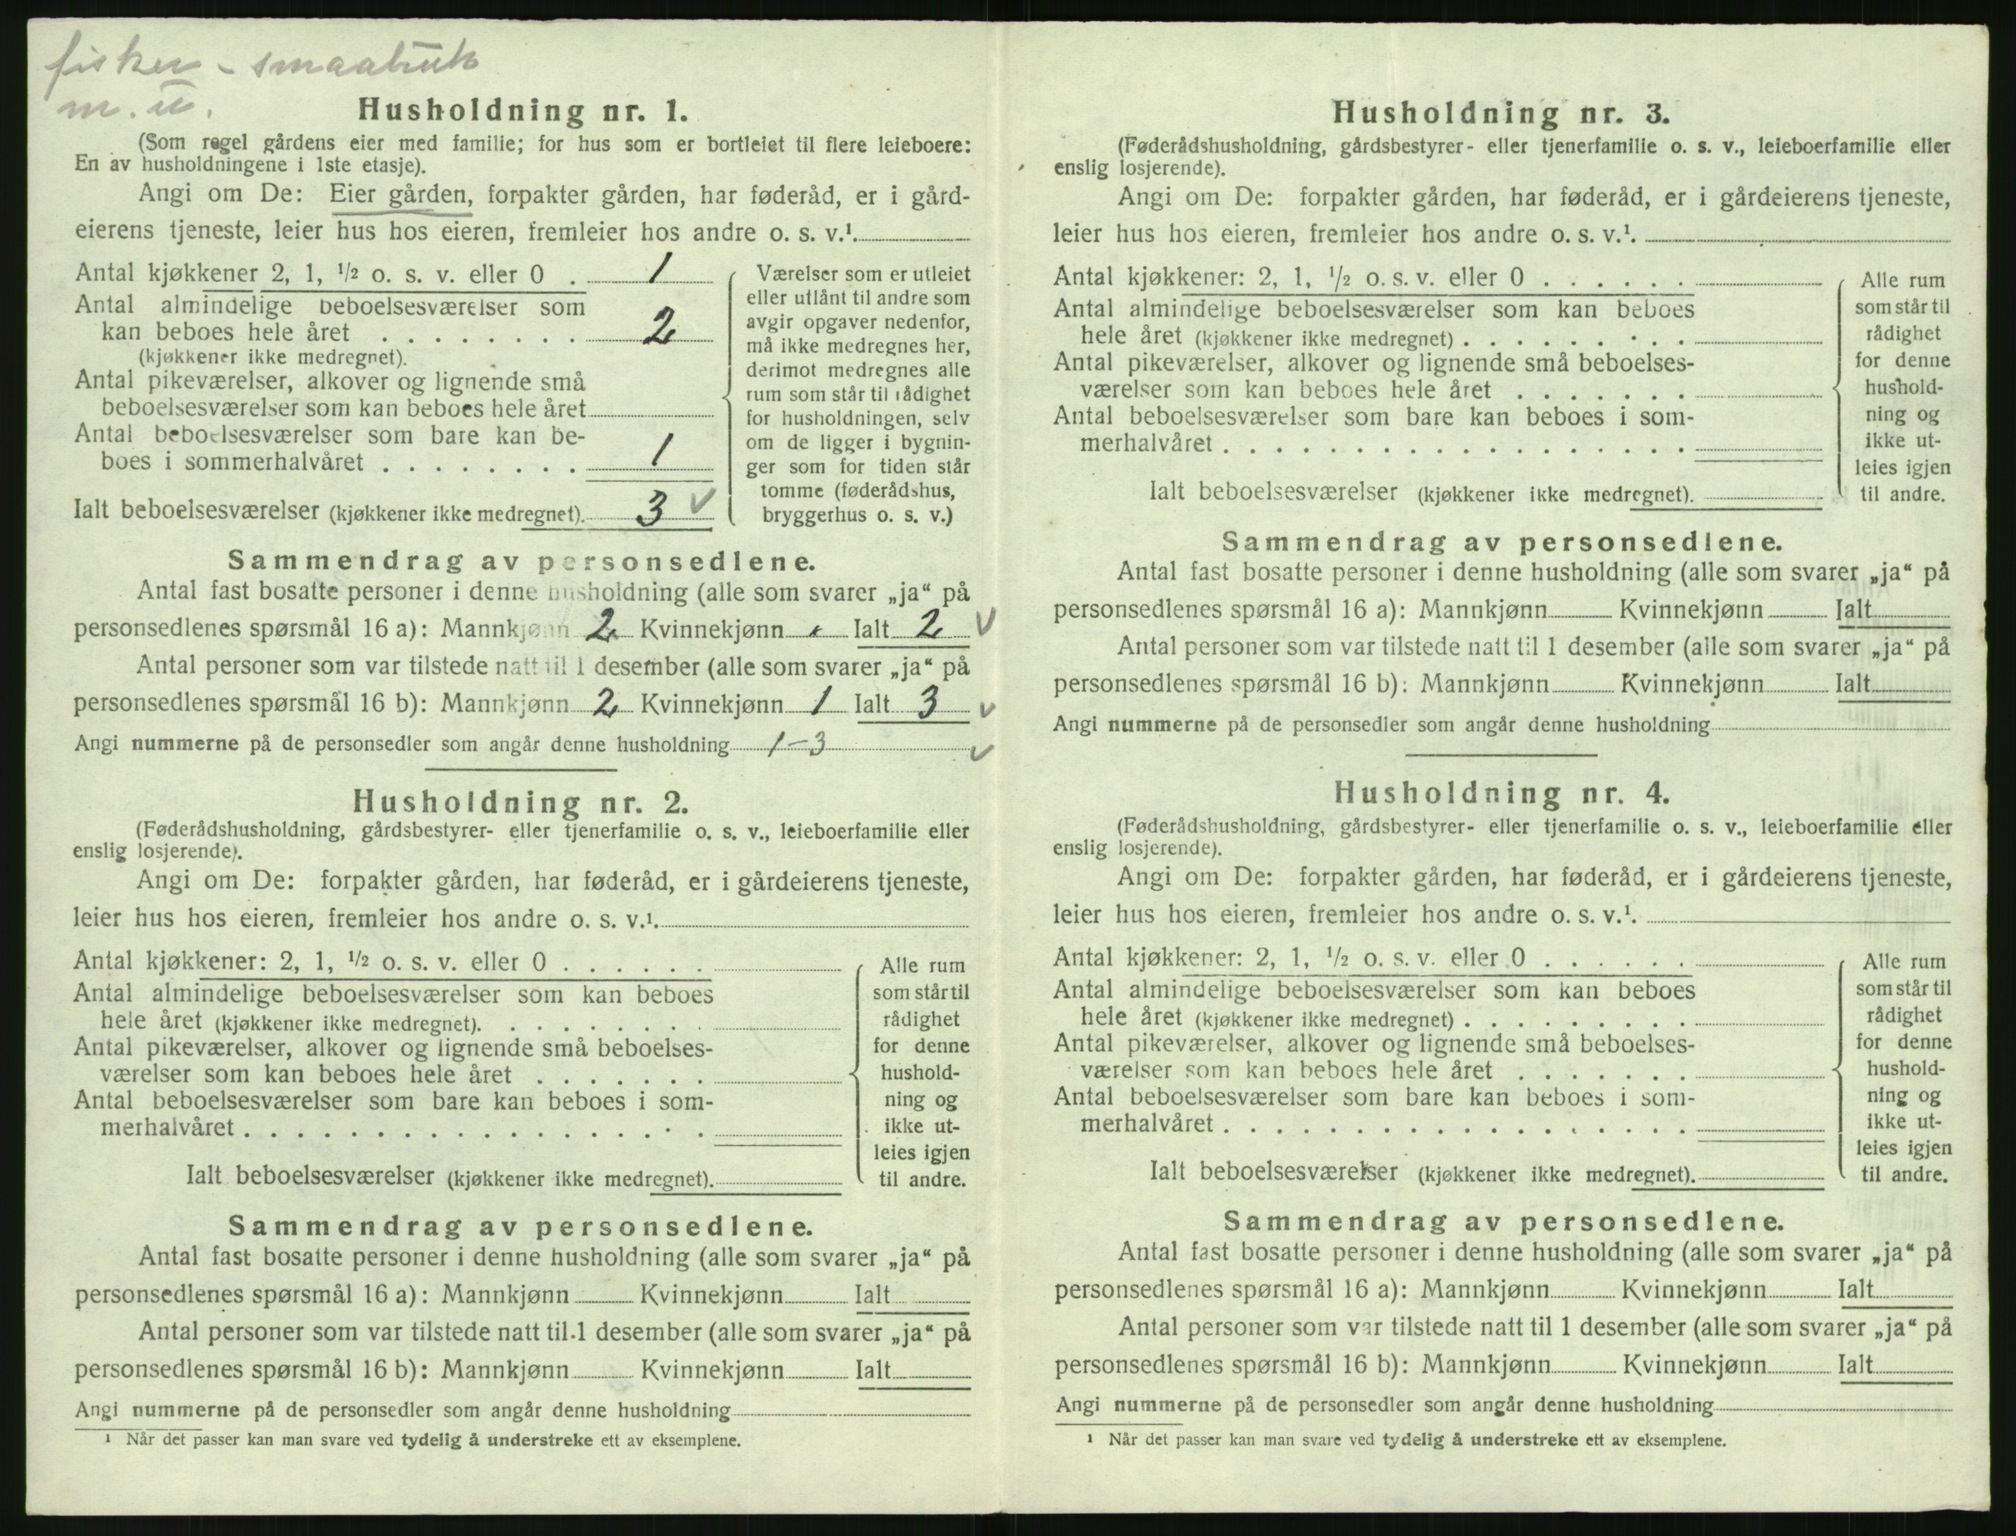 fisker - smaabruk
m. u.
Husholdning nr. 1.
(Som regel gårdens eier med familie; for hus som er bortleiet til flere leieboere:
En av husholdningene i 1ste etasje).
Angi om De: Eier gården, forpakter gården, har føderåd, er i gård-
eierens tjeneste, leier hus hos eieren, fremleier hos andre o. s. v.¹.
Antal kjøkkener 2, 1, ½ o. s. v. eller 0 . 1
Antal almindelige beboelsesværelser som
kan beboes hele året . . . . . . . . 2
(kjøkkener ikke medregnet).
Antal pikeværelser, alkover og lignende små
beboelsesværelser som kan beboes hele året
Antal beboelsesværelser som bare kan be-
boes i sommerhalvåret . . . . . . . . 1
Ialt beboelsesværelser (kjøkkener ikke medregnet). 3 ✓
Værelser som er utleiet
eller utlånt til andre som
avgir opgaver nedenfor,
må ikke medregnes her,
derimot medregnes alle
rum som står til rådighet
for husholdningen, selv
om de ligger i bygnin-
ger som for tiden står
tomme (føderådshus,
bryggerhus o. s. v.)
Sammendrag av personsedlene.
Antal fast bosatte personer i denne husholdning (alle som svarer „ja“ på
personsedlenes spørsmål 16 a): Mannkjønn 2 Kvinnekjønn - Ialt 2 ✓
Antal personer som var tilstede natt til 1 desember (alle som svarer „ja“ på
personsedlenes spørsmål 16 b): Mannkjønn 2 Kvinnekjønn 1 Ialt 3 ✓
Angi nummerne på de personsedler som angår denne husholdning 1-3 ✓
Husholdning nr. 2.
(Føderådshusholdning, gårdsbestyrer- eller tjenerfamilie o. s. v., leieboerfamilie eller
enslig losjerende).
Angi om De: forpakter gården, har føderåd, er i gårdeierens tjeneste,
leier hus hos eieren, fremleier hos andre o. s. v.¹.
Antal kjøkkener: 2, 1, ½ o. s. v. eller 0 . . . . . .
Antal almindelige beboelsesværelser som kan beboes
hele året (kjøkkener ikke medregnet). . . . . . . . .
Antal pikeværelser, alkover og lignende små beboelses-
værelser som kan beboes hele året . . . . . . .
Antal beboelsesværelser som bare kan beboes i som-
merhalvåret . . . . . . . . . . . . . . . . . .
Ialt beboelsesværelser (kjøkkener ikke medregnet).
Alle rum
som står til
rådighet
for denne
hushold-
ning og
ikke ut-
leies igjen
til andre.
Sammendrag av personsedlene.
Antal fast bosatte personer i denne husholdning (alle som svarer „ja“ på
personsedlenes spørsmål 16 a): Mannkjønn Kvinnekjønn Ialt
Antal personer som var tilstede natt til 1 desember (alle som svarer „ja“ på
personsedlenes spørsmål 16 b): Mannkjønn Kvinnekjønn Ialt
Angi nummerne på de personsedler som angår denne husholdning
¹ Når det passer kan man svare ved tydelig å understreke ett av eksemplene.
Husholdning nr. 3.
(Føderådshusholdning, gårdsbestyrer- eller tjenerfamilie o. s. v., leieboerfamilie eller
enslig losjerende).
Angi om De: forpakter gården, har føderåd, er i gårdeierens tjeneste,
leier hus hos eieren, fremleier hos andre o. s. v.¹.
Antal kjøkkener: 2, 1, ½ o. s. v. eller 0 . . . . . .
Antal almindelige beboelsesværelser som kan beboes
hele året (kjøkkener ikke medregnet) . . . . . . . . .
Antal pikeværelser, alkover og lignende små beboelses-
værelser som kan beboes hele året . . . . . . .
Antal beboelsesværelser som bare kan beboes i som-
merhalvåret . . . . . . . . . . . . . . . . . .
Ialt beboelsesværelser (kjøkkener ikke medregnet).
Alle rum
som står til
rådighet
for denne
hushold-
ning og
ikke ut-
leies igjen
til andre.
Sammendrag av personsedlene.
Antal fast bosatte personer i denne husholdning (alle som svarer „ja“ på
personsedlenes spørsmål 16 a): Mannkjønn Kvinnekjønn Ialt
Antal personer som var tilstede natt til 1 desember (alle som svarer „ja“ på
personsedlenes spørsmål 16 b): Mannkjønn Kvinnekjønn Ialt
Angi nummerne på de personsedler som angår denne husholdning
Husholdning nr. 4.
(Føderådshusholdning, gårdsbestyrer- eller tjenerfamilie o. s. v., leieboerfamilie eller
enslig losjerende).
Angi om De: forpakter gården, har føderåd, er i gårdeierens tjeneste,
leier hus hos eieren, fremleier hos andre o. s. v.¹.
Antal kjøkkener: 2, 1, ½ o. s. v. eller 0 . . . . . .
Antal almindelige beboelsesværelser som kan beboes
hele året (kjøkkener ikke medregnet) . . . . . . . . .
Antal pikeværelser, alkover og lignende små beboelses-
værelser som kan beboes hele året . . . . . . .
Antal beboelsesværelser som bare kan beboes i som-
merhalvåret . . . . . . . . . . . . . . . . . .
Ialt beboelsesværelser (kjøkkener ikke medregnet).
Alle rum
som står til
rådighet
for denne
hushold-
ning og
ikke ut-
leies igjen
til andre.
Sammendrag av personsedlene.
Antal fast bosatte personer i denne husholdning (alle som svarer „ja“ på
personsedlenes spørsmål 16 a): Mannkjønn Kvinnekjønn Ialt
Antal personer som var tilstede natt til 1 desember (alle som svarer „ja“ på
personsedlenes spørsmål 16 b): Mannkjønn Kvinnekjønn Ialt
Angi nummerne på de personsedler som angår denne husholdning
¹ Når det passer kan man svare ved tydelig å understreke ett av eksemplene.